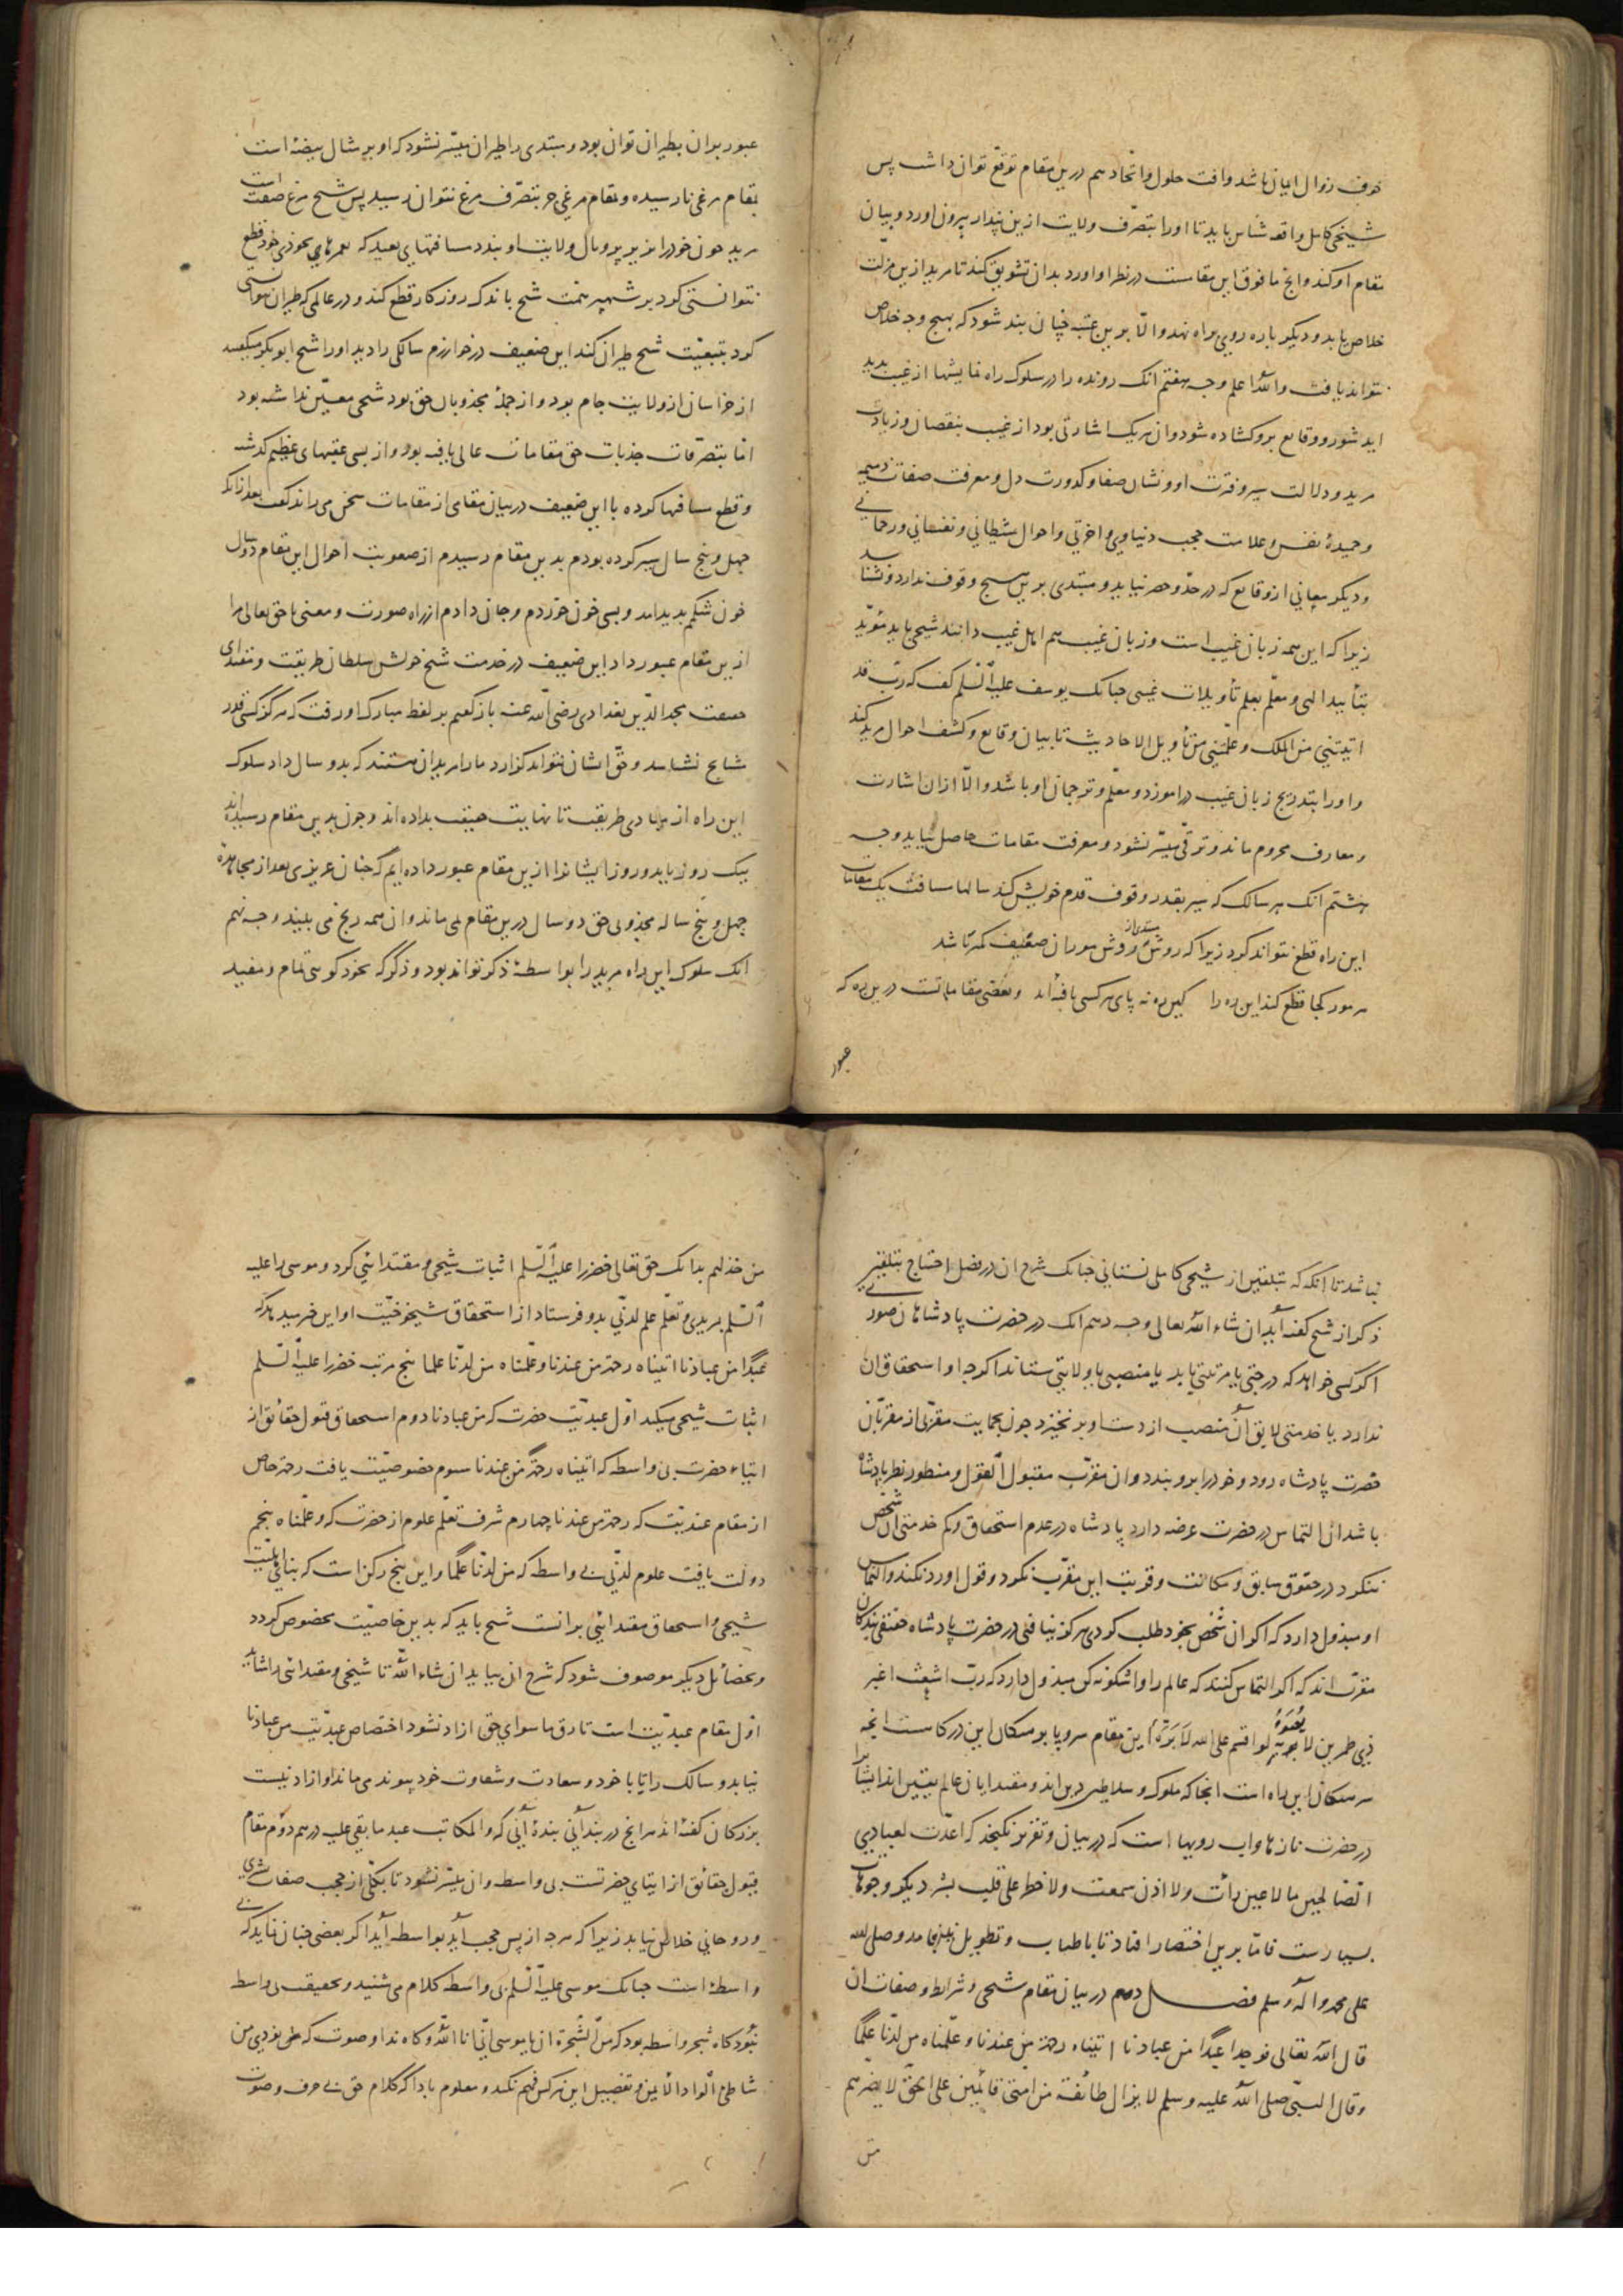 خوف زوال ایمان باشد و افت حلول و اتحاد هم درین مقام توقع توان داشت پس
شیخی کامل واقعه شناس باید تا او را بتصرف ولایت ازین پندار بیرون اورد و بیان
مقام او کند و انج ما فوق این مقامست در نظر او اورد و بدان تشویق کند تا مرید ازین مزلت
خلاص یابد و دیکر باره روی براه نهد و الا برین عتبه چنان بند شود که بهیج وجه خلاص
نتواند یافت والله اعلم وجه هفتم انک رونده را در سلوک راه نمایشها از غیب بدید
اید شود و وقایع برو کشاده شود و ان هر یک اشارتی بود از غیب بنقصان و زیادت
مرید و دلالت سیر و فترت او و نشان صفا و کدورت دل و معرفت صفات ذمیمه
و حمیدهٔ نفس و علامت حجب دنیاوی و اخرتی و احوال شیطانی و نفسانی و رحمانی
و دیکر معانی از وقایع که در حد و حصر نیاید و مبتدی برین هیج وقوف ندارد و نشناسد
زیرا که این همه زبان غیب است و زبان غیب هم اهل غیب دانند شیخی باید موید
بتأیید الهی و معلم بعلم تأویلات غیبی جنانک یوسف علیه السلم کفت که رب قد
اتیتنی من الملک و علمتنی من تأویل الاحادیث تا بیان وقایع و کشف احوال مرید کند
و او را بتدریج زبان غیب در اموزد و معلم و ترجمان او باشد والا از ان اشارت
و معارف محروم ماند و ترقی میسر نشود و معرفت مقامات حاصل نیاید وجه
هشتم انک هر سالک که سیر بقدر وقوف قدم خویش کند سالها مسافت یک مقام از مقامات
این راه قطع نتواند کرد زیرا که روش مبتدی از روش موران ضعیف کمتر باشد
هر مور کجا قطع کند این ره را کین ره نه پای هر کسی بافته اند و بعضی مقاماتست درین ره که
عبور
عبور بران بطیران توان بود و مبتدی را طیران میسر نشود که او بر مثال بیضه است
بمقام مرغی نارسیده و بمقام مرغی جز بتصرف مرغ نتوان رسید پس شیخ مرغ صفت است
مرید جون خود را بر پر و بال ولایت او بندد مسافتهای بعید که بعمرهای بخودی خود قطع
نتوانستی کرد بر شهپر همت شیخ باندک روزکار قطع کند و در عالمی که طیران نتوانستی
کرد بتبعیت شیخ طیران کند این ضعیف در خوارزم سالکی را دید او را شیخ ابوبکر میکفتند
از خراسان از ولایت جام بود و از جملهٔ مجذوبان حق بود شیخی معین نداشته بود
اما بتصرفات جذبات حق مقامات عالی یافته بود و از بسی عقبهای عظیم کذشته
و قطع مسافتها کرده با این ضعیف در بیان مقامی از مقامات سخن می راند کفت بعد از انک
جهل و پنج سال سیر کرده بودم بدین مقام رسیدم از صعوبت احوال این مقام دو سال
خون شکم بدید امد و بسی خون خوردم و جان دادم از راه صورت و معنی تا حق تعالی مرا
ازین مقام عبور داد این ضعیف در خدمت شیخ خویش سلطان طریقت و مقتدای
حقیقت مجد الدین بغدادی رضی الله عنه باز کفتم بر لفظ مبارک او رفت که هرکز کسی قدر
مشایخ نشناسد و حق ایشان نتواند کزارد ما را مریدان هستند که بدو سال داد سلوک
این راه از مبادی طریقت تا نهایت حقیقت بداده اند و جون بدین مقام رسیده اند
بیک روز یا بدو روز ایشانرا ازین مقام عبور داده ایم که جنان عزیزی بعد از مجاهدهٔ
چهل و پنج ساله مجذوبی حق دو سال درین مقام می ماند و ان همه رنج می بیند وجه نهم
انک سلوک این راه مرید را بواسطهٔ ذکر تواند بود و ذکر که بخود کویی تمام و مفید
نباشد تا انکه که بتلقین از شیخی کامل نستانی جنانک شرح ان در فصل احتیاج بتلقین
ذکر از شیخ کفته آید ان شاء الله تعالی وجه دهم انک در حضرت پادشاهان صوری
اکر کسی خواهد که درجتی یا مرتبتی یابد یا منصبی یا ولایتی ستاند اکرجه او استحقاق ان
ندارد یا خدمتی لایق آن منصب از دست او بر نخیزد جون بحمایت مقربی از مقربان
حضرت پادشاه رود و خود را برو بندد و ان مقرب مقبول القول و منظور نظر پادشاه
باشد ان التماس در حضرت عرضه دارد پادشاه در عدم استحقاق و کم خدمتی ان شخص
ننکرد در حقوق سابق و مکانت و قربت این مقرب نکرد و قول او رد نکند و التماس
او مبذول دارد که اکر ان شخص بخود طلب کردی هرکز نیافتی در حضرت پادشاه حقیقی بندکان
مقرب اند که اکر التماس کنند که عالم را واشکونه کن مبذول دارد که رب اشعث اغبر
ذی طمرین لا یؤبه به لو اقسم علی الله لابره این مقام سر و پا برهنکان این درکاست انجه
سر هنکان این راه است انجا که ملوک و سلاطین دین اند و مقتدایان عالم یقین اند ایشانرا
در حضرت نازها و اب رویها است که در بیان و تقریر نکنجد که اعدت لعبادی
الصالحین ما لا عین رأت ولا اذن سمعت ولا خطر علی قلب بشر دیکر وجوهات
بسیارست فاما برین اختصار افتاد تا باطناب و تطویل نینجامد وصلی الله
علی محمد و آله وسلم فصل دهم در بیان مقام شیخی و شرایط و صفات ان
قال الله تعالی فوجدا عبدا من عبادنا اتیناه رحمة من عندنا و علمناه من لدنا علما
وقال النبی صلی الله علیه وسلم لا یزال طائفة من امتی قائمین علی الحق لا یضرهم
من
من خذلهم بدانک حق تعالی خضر را علیه السلم اثبات شیخی و مقتدائی کرد و موسی را علیه
السلم بمریدی و تعلم علم لدنی بدو فرستاد از استحقاق شیخوخیت او این خبر میدهد که
عبدا من عبادنا اتیناه رحمة من عندنا و علمناه من لدنا علما پنج مرتبه خضر را علیه السلم
اثبات شیخی میکند اول عبدیت حضرت که من عبادنا دوم استحقاق قبول حقائق از
ایتاء حضرت بی واسطه که اتیناه رحمة من عندنا سیوم خصوصیت یافت رحمت خاص
از مقام عندیت که رحمة من عندنا چهارم شرف تعلم علوم از حضرت که و علمناه پنجم
دولت یافت علوم لدنی بی واسطه که من لدنا علما و این پنج رکن است که بنای اهلیت
شیخی و استحقاق مقتدائی برانست شیخ باید که بدین خاصیت مخصوص کردد
و بخصائل دیکر موصوف شود که شرح ان بیاید ان شاء الله تا شیخی و مقتدائی را شاید
اول مقام عبدیت است تا از رق ما سوای حق ازاد نشود اختصاص عبدیت من عبادنا
نیابد و سالک را تا با خود و سعادت و شقاوت خود پیوند می ماند او ازاد نیست
بزرکان کفته اند هر انج در بند آنی بندهٔ آنی که و المکاتب عبد ما بقی علیه درهم دوم مقام
قبول حقائق از ایتای حضرتست بی واسطه و ان میسر نشود تا بکلی از حجب صفات بشری
و روحانی خلاص نیابد زیرا که هرجه از پس حجب آید بواسطه آید اکر بعضی جنان نماید که بی
واسطه است جنانک موسی علیه السلم بی واسطه کلام می شنید و بحقیقت بی واسطه
نبود کاه شجر واسطه بود که من الشجرة ان یا موسی انی انا الله و کاه ندا و صوت که نودی من
شاطئ الواد الایمن و تفصیل این هر کس فهم نکند و معلوم بادا که کلام حق بی حرف و صوت